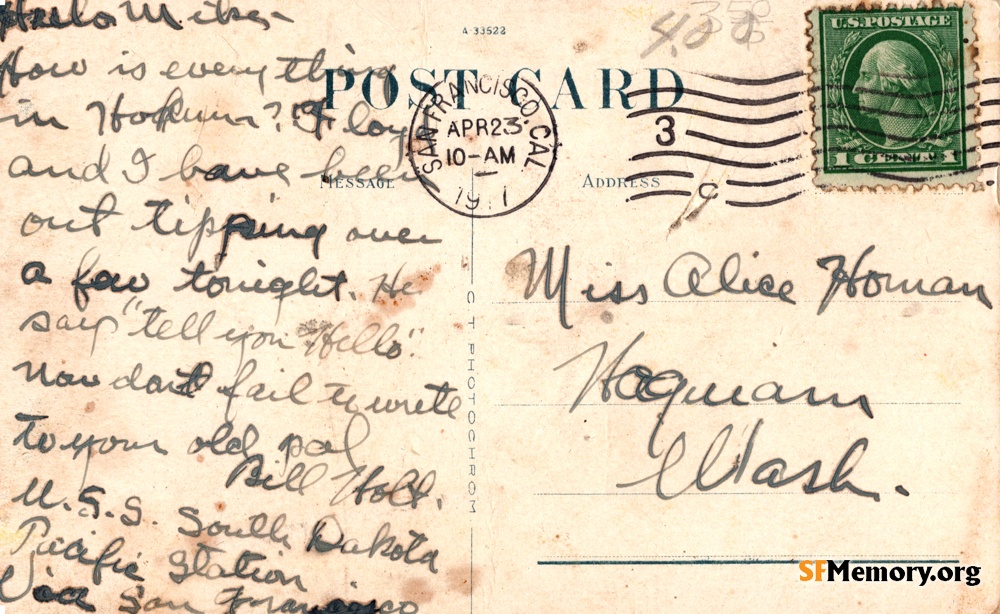 Hello Mike-
How is everything
in Hokum? Floyd
and I have been
out tipping over
a few tonight. He
say "tell you Hello".
Now dont fail to write
to your old pal
Bill Holt.
U.S.S. South Dakota
Pacific Station
Via San Francisco
A-33522
POST CARD
MESSAGE
ADDRESS
SAN FRANCISCO, CAL
APR 23
10-AM
3
C
U.S. POSTAGE
1 CENT 1
400
350
C T PHOTOCHROM
Miss Alice Homan
Hoquiam
Wash.
SFMemory.org